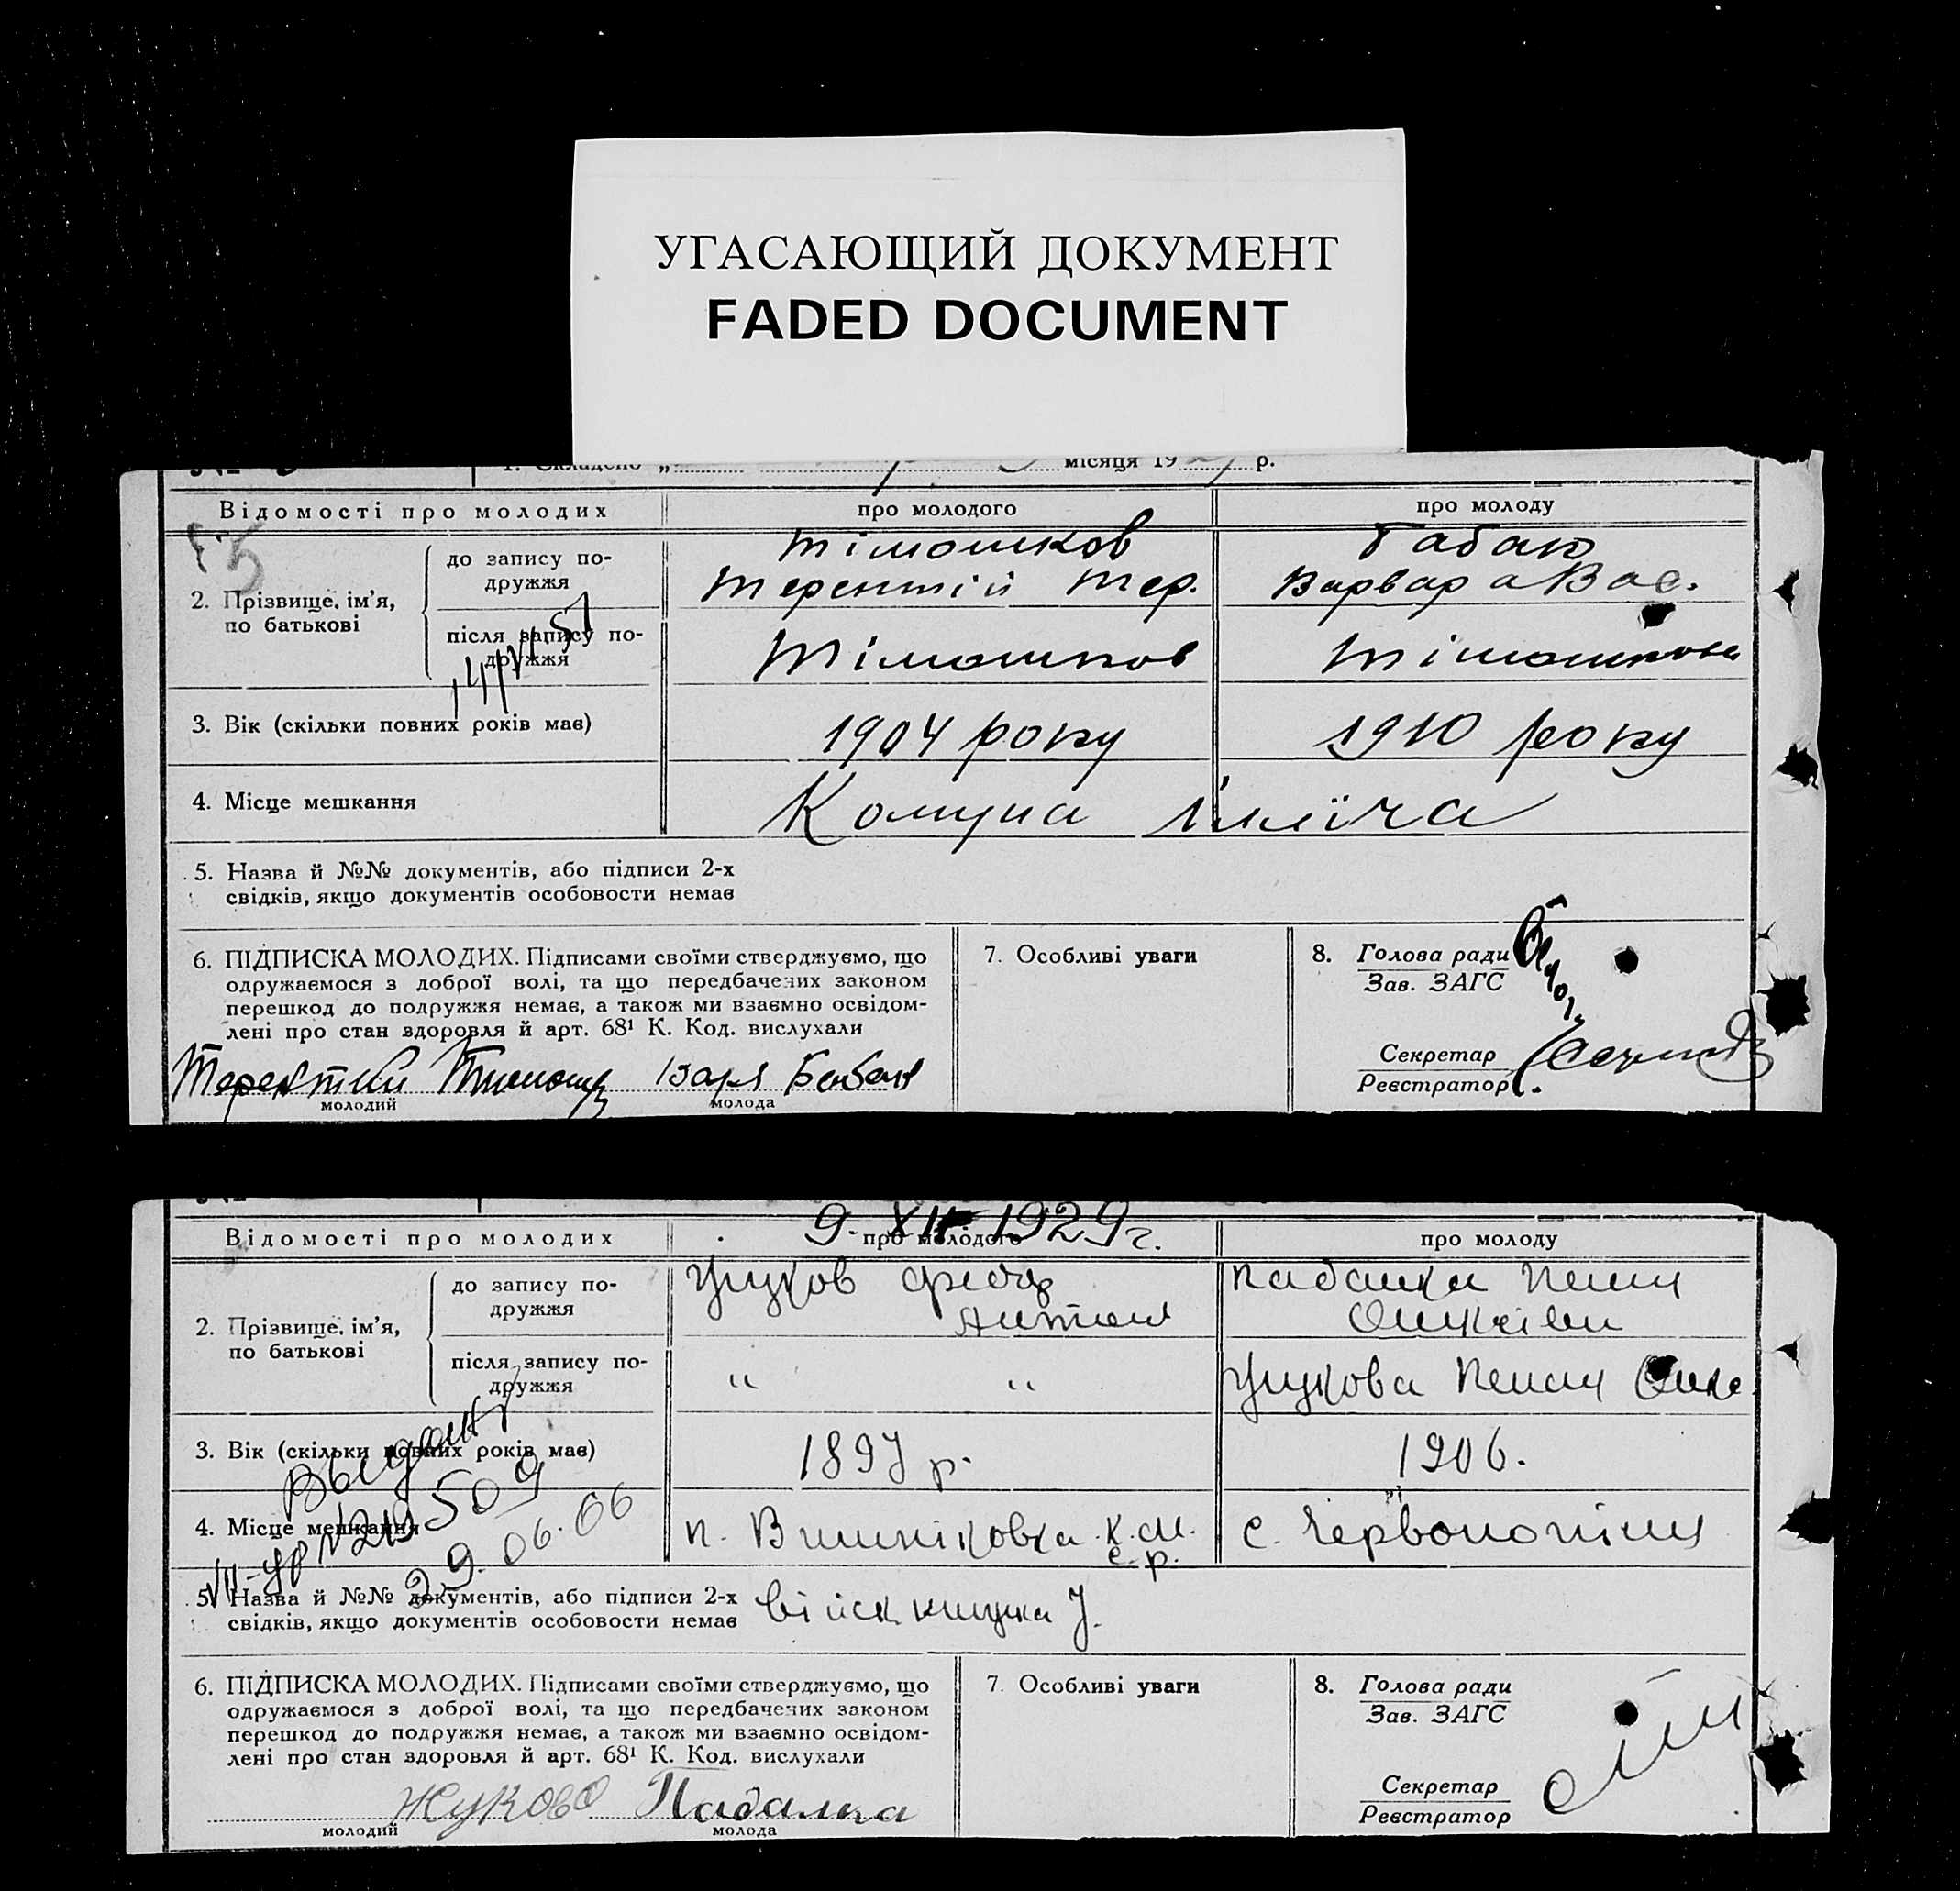 УГАСАЮЩИЙ ДОКУМЕНТ
FADED DOCUMENT
1. Складено „ місяця 19 р.
Відомості про молодих про молодого про молоду
5
2. Прізвище, ім'я, по батькові
до запису по-
дружжя
Тімошков
Терентій Тер.
Бабак
Варвара Вас.
після запису по-
дружжя
Тімошков
Тімошкова
3. Вік (скільки повних років має) 1904 року 1910 року
4. Місце мешкання Комуна Ілліча
5. Назва й №№ документів, або підписи 2-х
свідків, якщо документів особовости немає
6. ПІДПИСКА МОЛОДИХ. Підписами своїми стверджуємо, що
одружаємося з доброї волі, та що передбачених законом
перешкод до подружжя немає, а також ми взаємно освідом-
лені про стан здоровля й арт. 68¹ К. Код. вислухали
Терентий
молодий молода
7. Особливі уваги
8. Голова ради
Зав. ЗАГС
Секретар
Реєстратор
9. XII 1929 г.
Відомості про молодих про молодого про молоду
2. Прізвище, ім'я,
по батькові
до запису по-
дружжя
Жуков Федор
Антон
Падалка
після запису по-
дружжя
" "
Жукова
3. Вік (скільки повних років має) 1897 р. 1906.
Выдан
4. Місце мешкання п. Вишніковка К.М.
с.р.
с. Червонопілля
509
29.06.66
5. Назва й №№ документів, або підписи 2-х
свідків, якщо документів особовости немає
військ книжка Ж.
6. ПІДПИСКА МОЛОДИХ. Підписами своїми стверджуємо, що
одружаємося з доброї волі, та що передбачених законом
перешкод до подружжя немає, а також ми взаємно освідом-
лені про стан здоровля й арт. 68¹ К. Код. вислухали
Жуково Падалка
молодий молода
7. Особливі уваги
8. Голова ради
Зав. ЗАГС
Секретар
Реєстратор